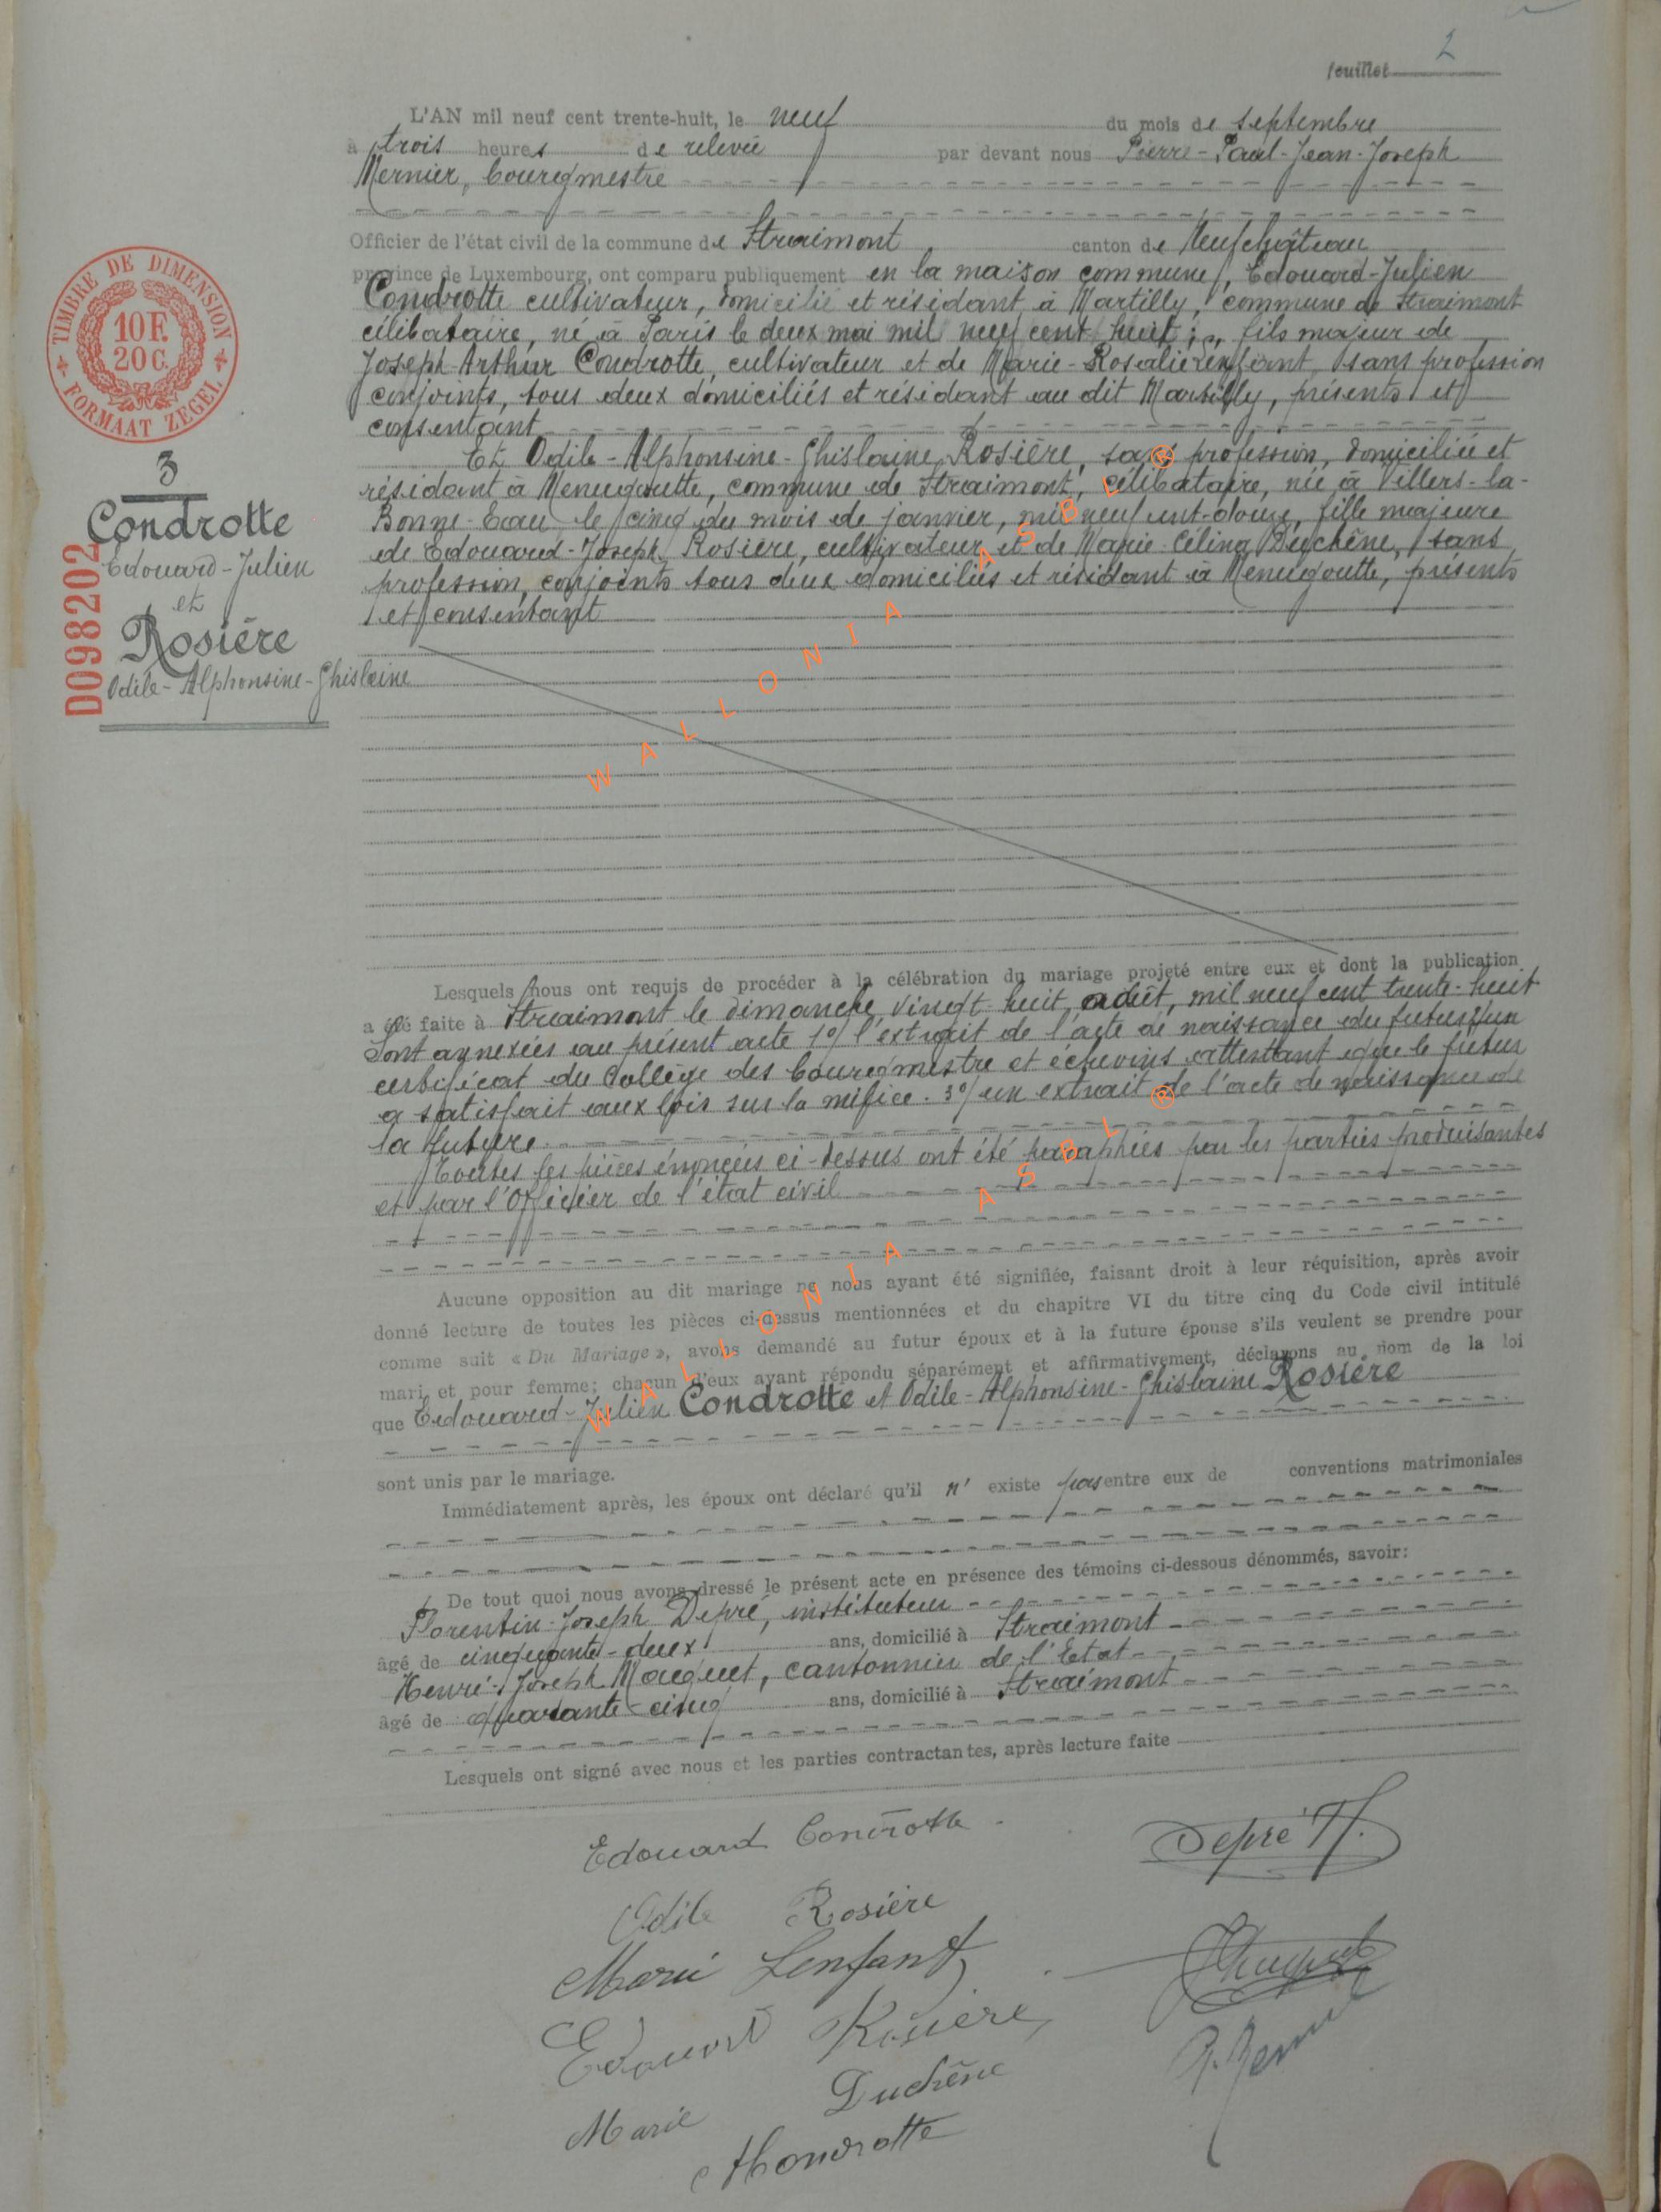 feuillet 2
L'AN mil neuf cent trente-huit, le neuf du mois de septembre
à trois heures de relevée par devant nous Pierre-Paul-Jean-Joseph
Mernier, bourgmestre
Officier de l'état civil de la commune de Straimont, canton de Neufchâteau
province de Luxembourg, ont comparu publiquement en la maison commune, Edouard-Julien
Condrotte cultivateur, domicilié et résidant à Martilly, commune de Straimont
célibataire, né à Paris le deux mai mil neuf cent huit, fils majeur de
Joseph-Arthur Condrotte, cultivateur et de Marie-Rosalie Lenfant, sans profession
conjoints, tous deux domiciliés et résidant au dit Martilly, présents et
consentant
Et Odile-Alphonsine-Ghislaine Rosière, sans profession, domiciliée et
résidant à Menugoutte, commune de Straimont, célibataire, née à Villers-la-
Bonne-Eau, le cinq du mois de janvier, mil neuf cent-douze, fille majeure
de Edouard-Joseph Rosière, cultivateur et de Marie-Célina Duchêne, sans
profession, conjoints tous deux domiciliés et résidant à Menugoutte, présents
et consentant
TIMBRE DE DIMENSION
10 F.
20 C.
FORMAAT ZEGEL
D098202
3
Condrotte
Edouard-Julien
et
Rosière
Odile-Alphonsine-Ghislaine
WALLONIA ASBL ®
Lesquels nous ont requis de procéder à la célébration du mariage projeté entre eux et dont la publication
a été faite à Straimont le dimanche vingt-huit août, mil neuf cent trente-huit
Sont annexées au présent acte 1°/ l'extrait de l'acte de naissance du futur 2°/ un
certificat du Collège des bourgmestre et échevins attestant que le futur
a satisfait aux lois sur la milice. 3°/ un extrait de l'acte de naissance de
la future.
Toutes les pièces énoncées ci-dessus ont été paraphées par les parties produisantes
et par l'Officier de l'état civil
WALLONIA ASBL ®
Aucune opposition au dit mariage ne nous ayant été signifiée, faisant droit à leur réquisition, après avoir
donné lecture de toutes les pièces ci-dessus mentionnées et du chapitre VI du titre cinq du Code civil intitulé
comme suit « Du Mariage », avons demandé au futur époux et à la future épouse s'ils veulent se prendre pour
mari et pour femme; chacun d'eux ayant répondu séparément et affirmativement, déclarons au nom de la loi
que Edouard-Julien Condrotte et Odile-Alphonsine-Ghislaine Rosière
sont unis par le mariage.
Immédiatement après, les époux ont déclaré qu'il n' existe pas entre eux de conventions matrimoniales
De tout quoi nous avons dressé le présent acte en présence des témoins ci-dessous dénommés, savoir:
Florentin-Joseph Depré, instituteur
âgé de cinquante-deux ans, domicilié à Straimont
Henri-Joseph Maquet, cantonnier de l'Etat
âgé de quarante-cinq ans, domicilié à Straimont
Lesquels ont signé avec nous et les parties contractantes, après lecture faite
Edouard Condrotte
Depré
Odile Rosière
Marie Lenfant
Edouard Rosière
Marie Duchêne